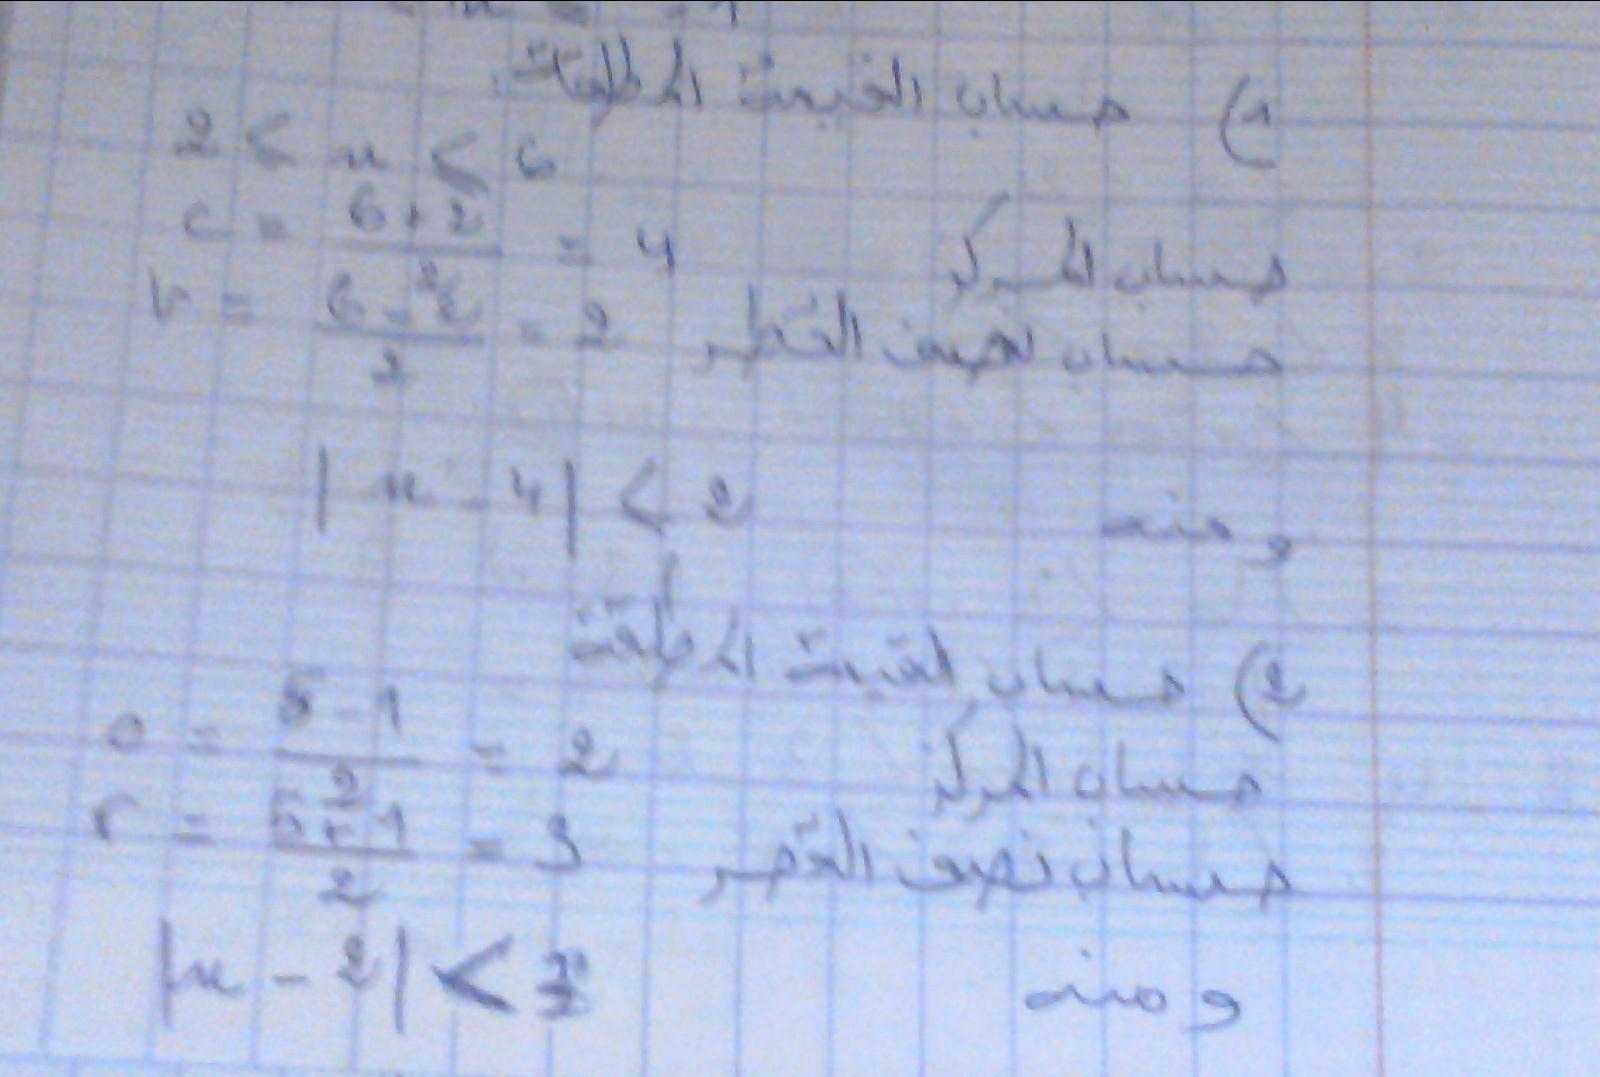 1) حساب القيمة المطلقة
2 < x < 6
حساب المركز c = 6+2/2 = 4
حساب نصف القطر r = 6-2/2 = 2
ومنه |x - 4| < 2
2) حساب القيمة المطلقة
حساب المركز c = 5-1/2 = 2
حساب نصف القطر r = 5+1/2 = 3
ومنه |x - 2| <